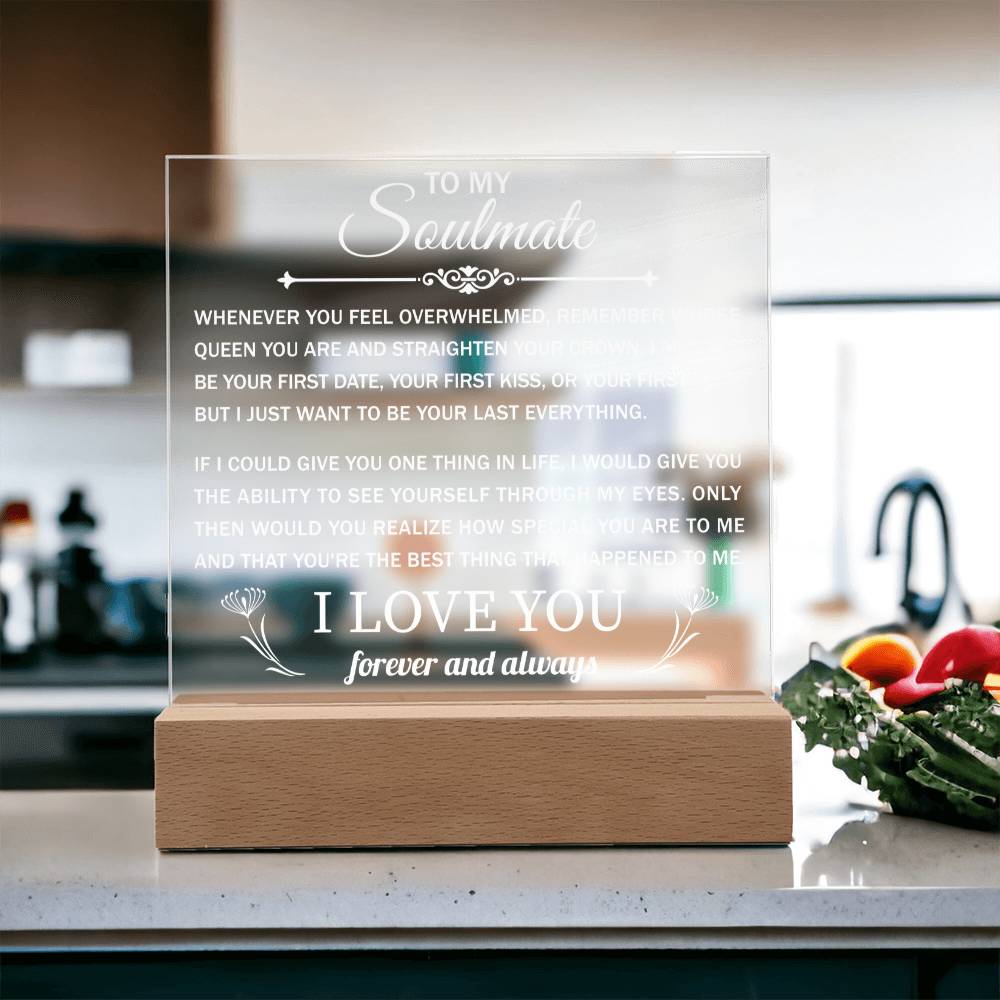 TO MY
Soulmate
WHENEVER YOU FEEL OVERWHELMED, REMEMBER WHOSE
QUEEN YOU ARE AND STRAIGHTEN YOUR CROWN. I
BE YOUR FIRST DATE, YOUR FIRST KISS, OR YOUR FIRST
BUT I JUST WANT TO BE YOUR LAST EVERYTHING.
IF I COULD GIVE YOU ONE THING IN LIFE, I WOULD GIVE YOU
THE ABILITY TO SEE YOURSELF THROUGH MY EYES. ONLY
THEN WOULD YOU REALIZE HOW SPECIAL YOU ARE TO ME
AND THAT YOU'RE THE BEST THING THAT HAPPENED TO ME
I LOVE YOU
forever and always